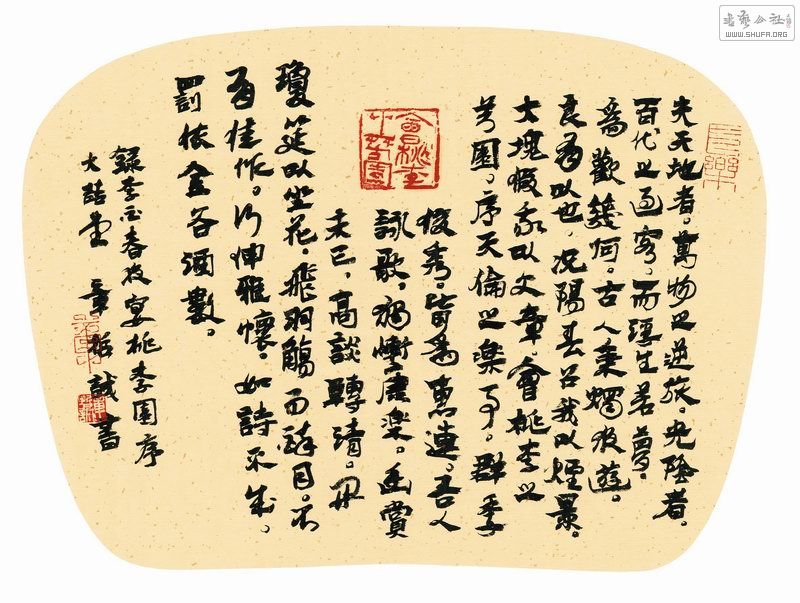 夫天地者。萬物之逆旅。光陰者。
百代之過客。而浮生若夢。
為歡幾何。古人秉燭夜遊。
良有以也。況陽春召我以煙景。
大塊假我以文章。會桃李之
芳園。序天倫之樂事。群季
俊秀。皆為惠連。吾人
詠歌。獨慚康樂。幽賞
未已。高談轉清。開
瓊筵以坐花。飛羽觴而醉月。不
有佳作。何伸雅懷。如詩不成。
罰依金谷酒數。
錄李白春夜宴桃李園序
大喆堂 章哲誠書
長樂
書藝公社
WWW.SHUFA.ORG